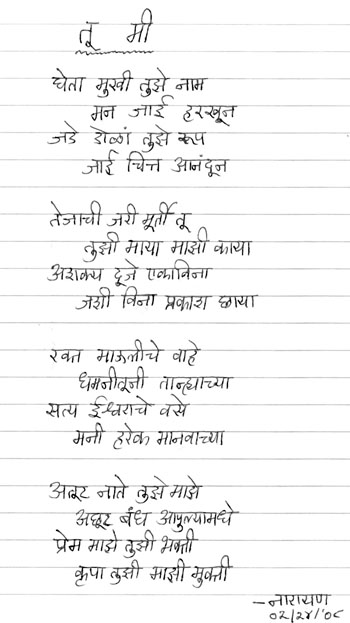 तू मी
घेता मुखी तुझे नाम
मन जाई हरखून
जडे डोळां तुझे रूप
जाई चित्त आनंदून
तेजाची जरी मूर्ती तू
तुझी माया माझी काया
अशक्य दूजे एकाविना
जशी विना प्रकाश छाया
रक्त माऊलीचे वाहे
धमनीतूनी तान्ह्याच्या
सत्य ईश्वराचे वसे
मनी हरेक मानवाच्या
अतूट नाते तुझे माझे
अछूट बंध आपुल्यामधे
प्रेम माझे तुझी भक्ती
कृपा तुझी माझी मुक्ती
—नारायण